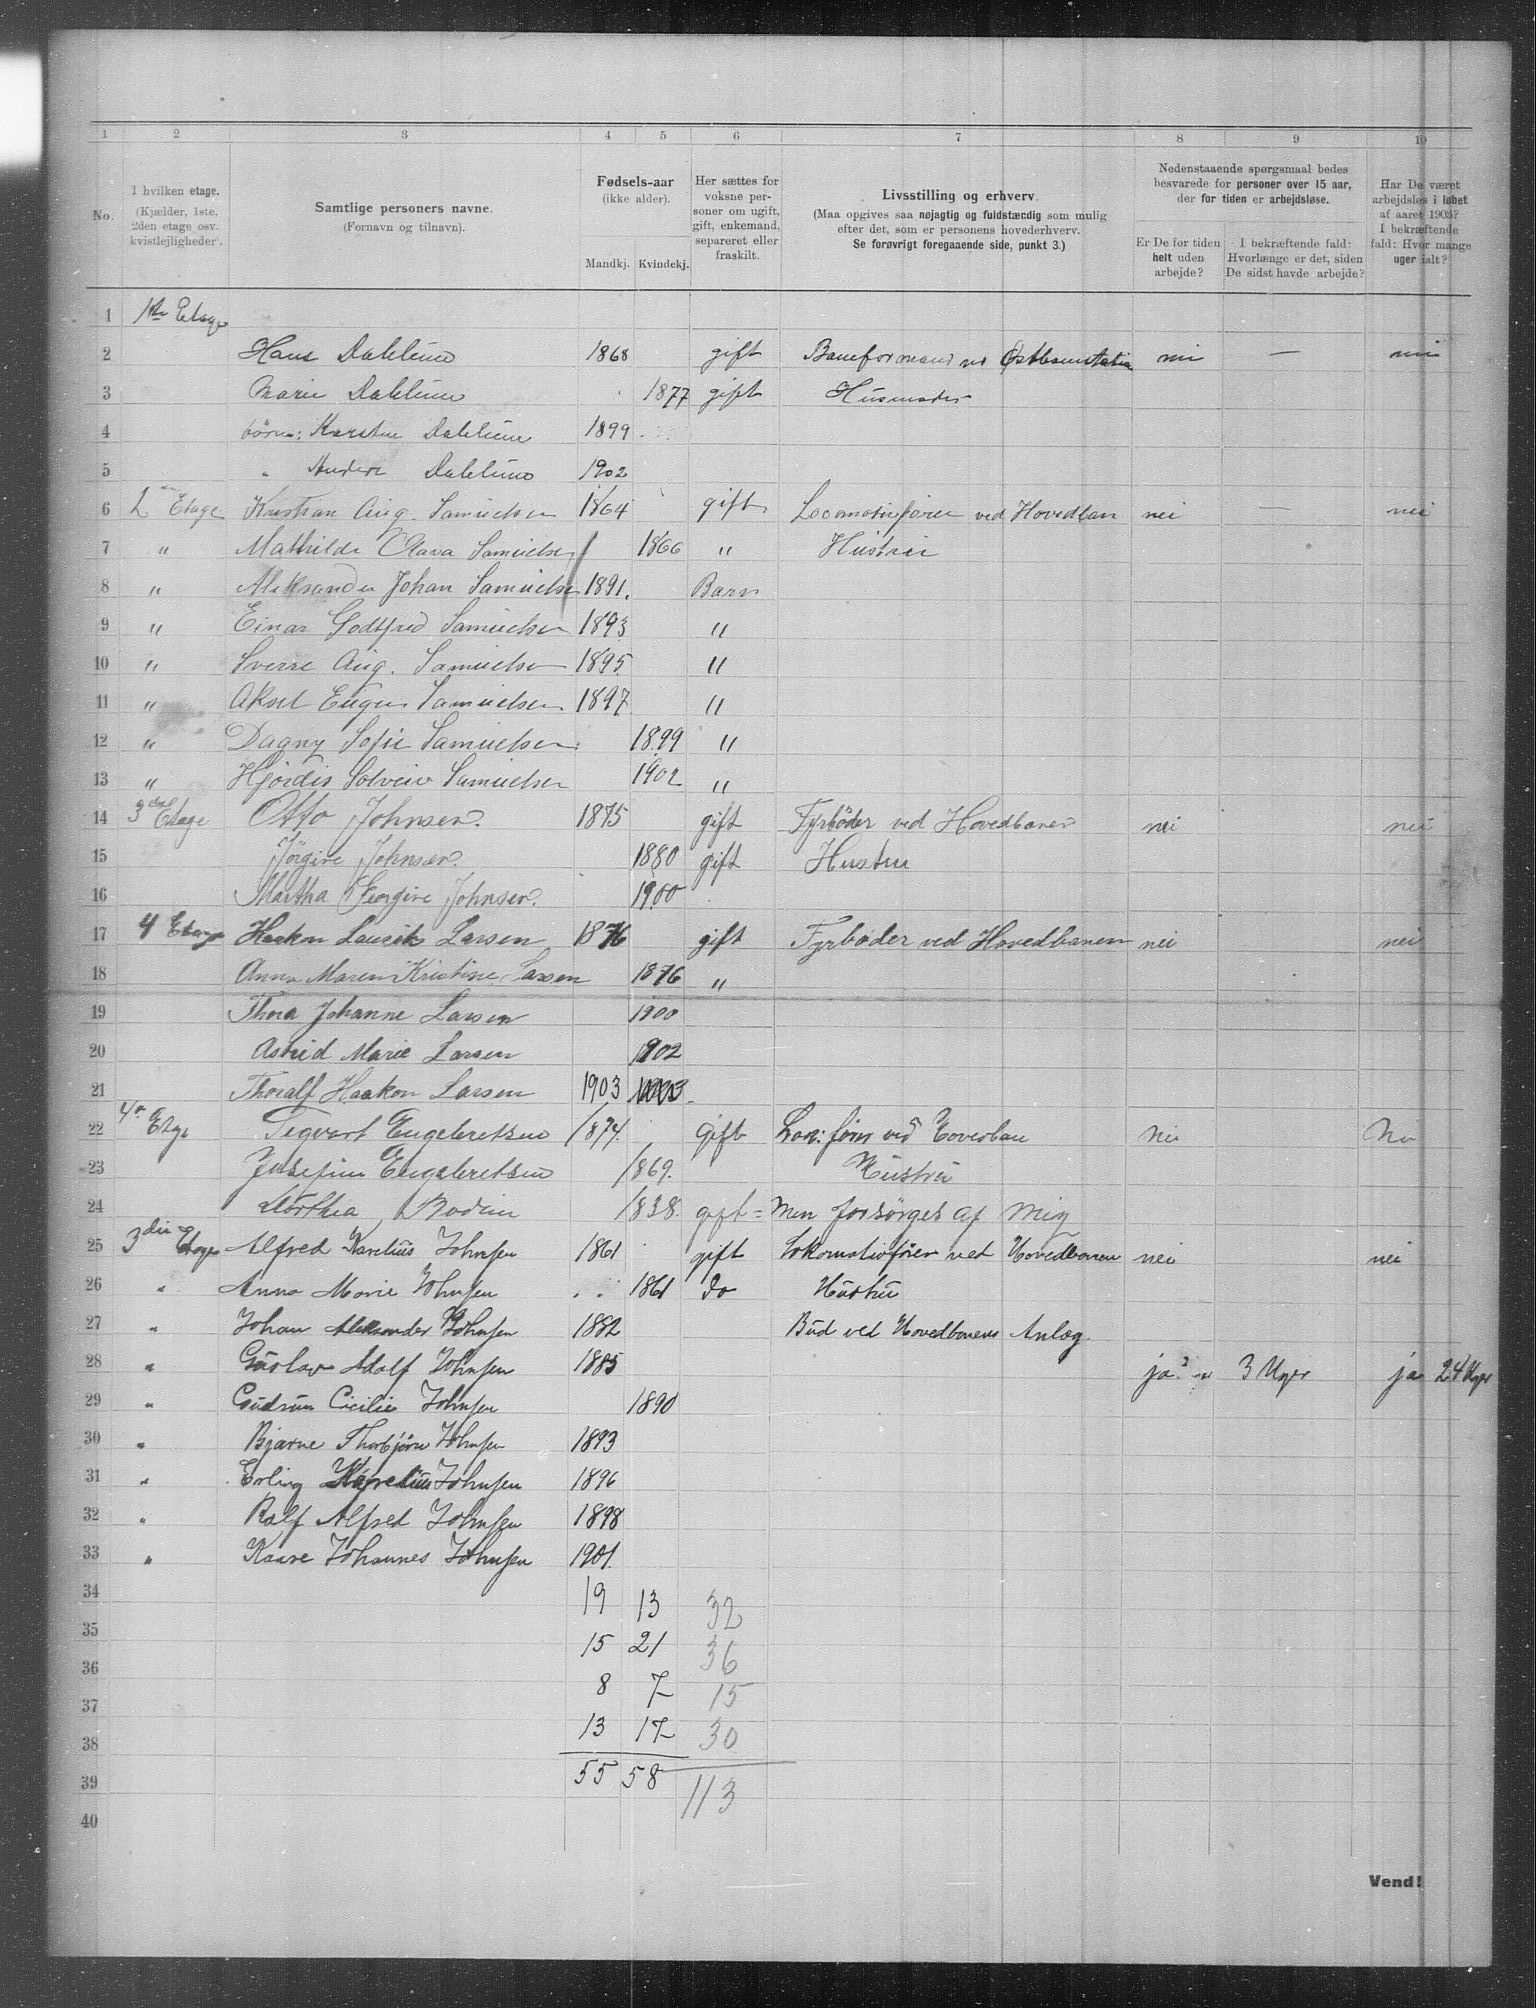 1 2 3 4 5 6 7 8 9 10
No.
I hvilken etage. (Kjælder, 1ste, 2den etage osv. kvistlejligheder).
Samtlige personers navne. (Fornavn og tilnavn).
Fødsels-aar (ikke alder). Mandkj. Kvindekj.
Her sættes for voksne personer om ugift, gift, enkemand, separeret eller fraskilt.
Livsstilling og erhverv. (Maa opgives saa nøjagtig og fuldstændig som mulig efter det, som er personens hovederhverv. Se forøvrigt foregaaende side, punkt 3.)
Nedenstaaende spørgsmaal bedes besvarede for personer over 15 aar, der for tiden er arbejdsløse.
Er De for tiden helt uden arbejde?
I bekræftende fald: Hvorlænge er det, siden De sidst havde arbejde?
Har De været arbejdsløs i løbet af aaret 1903? I bekræftende fald: Hvor mange uger ialt?
1 1ste Etage
2 Hans 1868 gift Baneformand nei — nei
3 Marie 1877 gift Husmoder
4 børn: Karsten 1899
5 " 1902
6 2 Etage Kristian Aug. Samuelsen 1864 gift Locomotivfører ved Hovedban nei — nei
7 " Mathilde Olava Samuelsen 1866 " Hustru
8 " Aleksander Johan Samuelsen 1891. Barn
9 " Einar Godtfred Samuelsen 1893 "
10 " Sverre Aug. Samuelsen 1895 "
11 " Aksel Eugen Samuelsen 1897 "
12 " Dagny Sofie Samuelsen 1899 "
13 " Hjördis Solveiv Samuelsen 1902 "
14 3die Etage Otto Johnsen. 1875 gift Fyrbøder ved Hovedbanen nei nei
15 Jörgine Johnsen. 1880 gift Hustru
16 Martha Georgine Johnsen. 1900
17 4 Etage Haakon Laurits Larsen 1876 gift Fyrbøder ved Hovedbanen nei nei
18 Anna Maren Kristine Larsen 1876 "
19 Thora Johanne Larsen 1900
20 Astrid Marie Larsen 1902
21 Thoralf Haakon Larsen 1903
22 4de Etge Sigvart Engebretsen 1874. gift ved Hovedban Nei Nei
23 Josefine Engebretsen 1869. Hustru
24 Dorthea Bodin 1838. gift = Men forsørges af Mig
25 3die Etage Alfred Karelius Johnsen 1861 gift Lokomotivfører ved Hovedbanen nei nei
26 " Anna Marie Johnsen 1861 do Hustru
27 " Johan Aleksander Johnsen 1882 Bud ved Hovedbanens Anlæg.
28 " Gustav Adolf Johnsen 1885 ja 3 Uger ja 24 Uger
29 " Gudrun Cicilie Johnsen 1890
30 " Bjarne Thorbjörn Johnsen 1893
31 " Erling Karelius Johnsen 1896
32 " Ralf Alfred Johnsen 1898
33 " Kaare Johannes Johnsen 1901.
34 19 13 32
35 15 21 36
36 8 7 15
37 13 17 30
38
39 55 58 113
40
Vend!